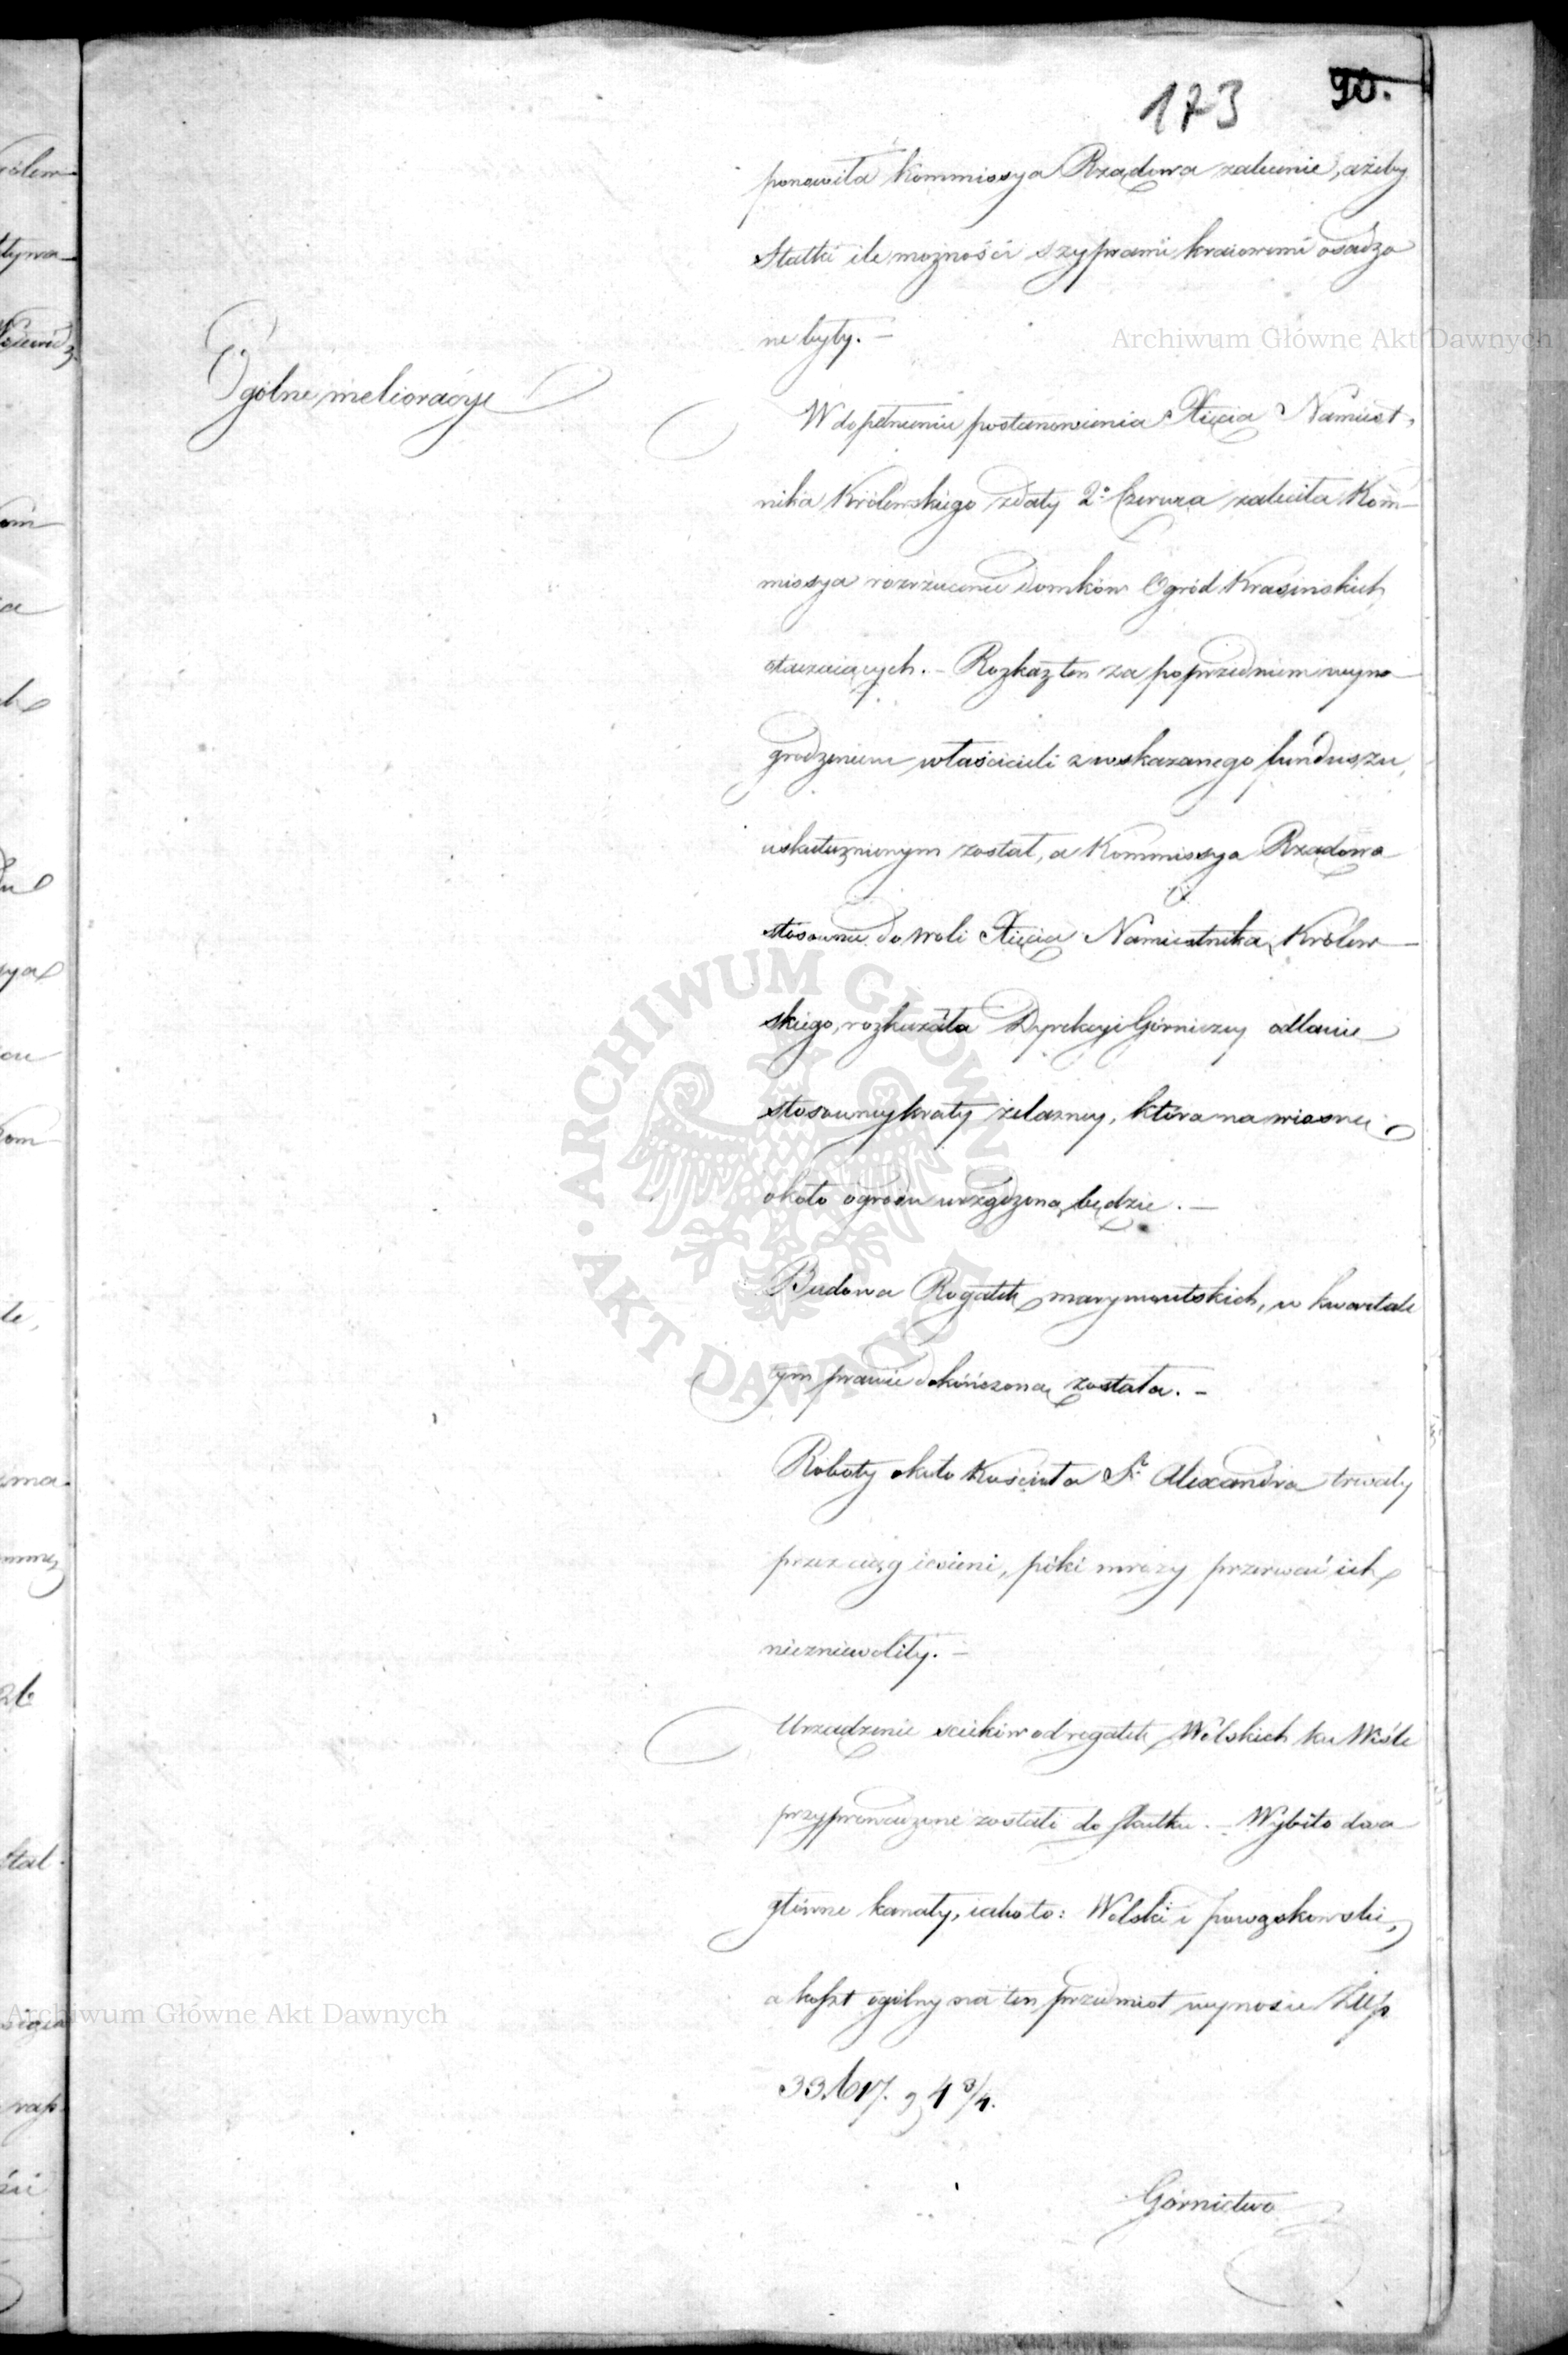 173 90.
ponowiła Kommissya Rządowa zalecenie, ażeby
Statki ile możności szyprami kraiowemi osadzo
ne były. –
Ogólne melioracye
W dopełnieniu postanowienia Xięcia Namiest-
nika Królewskiego z daty 2º Czerwca zaleciła Kom-
missya rozrzucenie domków Ogród Krasińskich
otaczaiących. – Rozkaz ten za poprzedniem wyna-
grodzeniem właścicieli z wskazanego funduszu,
uskutecznionym został, a Kommissya Rządowa
stósownie do woli Xięcia Namiestnika Królew-
skiego, rozkazała Dyrekcyi Górniczey odlanie
stosowney kraty żelazney, która na wiosnę
około ogrodu urządzoną będzie. –
Budowa Rogatek marymontskich, w kwartale
tym prawie dokończoną została. –
Roboty około Kościoła Sº Alexandra trwały
przez ciąg iesieni, póki mrozy przerwać ich
nie zniewoliły. –
Urządzenie ścieków od rogatek Wolskich ku Wiśle
przyprowadzone zostało do skutku. – Wybito dwa
główne kanały, iako to: Wolski i powązkowski,
a koszt ogólny na ten przedmiot wynosi Złłp
33.617. g 4 3/4.
Górnictwo
Archiwum Główne Akt Dawnych
ARCHIWUM GŁÓWNE • AKT DAWNYCH
Archiwum Główne Akt Dawnych